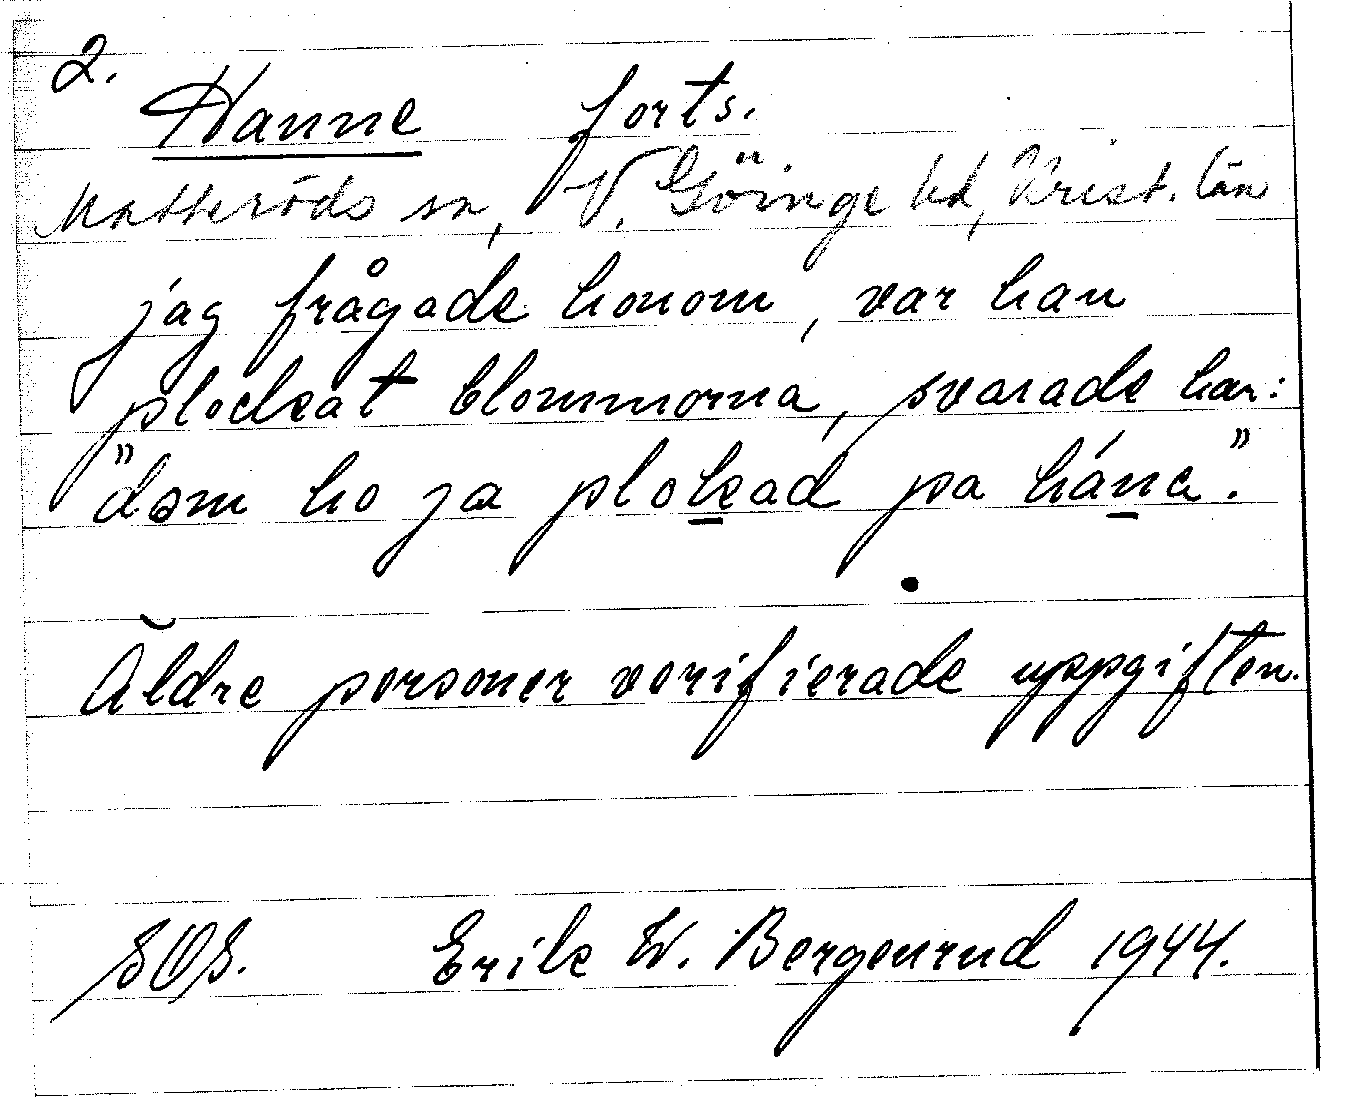 2.
Hanne forts.
Matteröds sn, V. Göinge hd, Krist. län
jag frågade honom, var han
plockat blommorna, svarade han:
"dəm ho ja plokad pa hánə."
Äldre personer verifierade uppgiften.
SOS. Erik W. Bergenrud 1944.